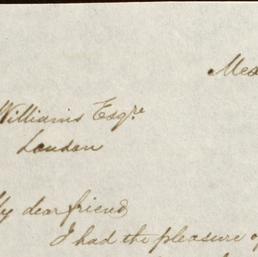 Williams Esqre
London
My dear friend
I had the pleasure